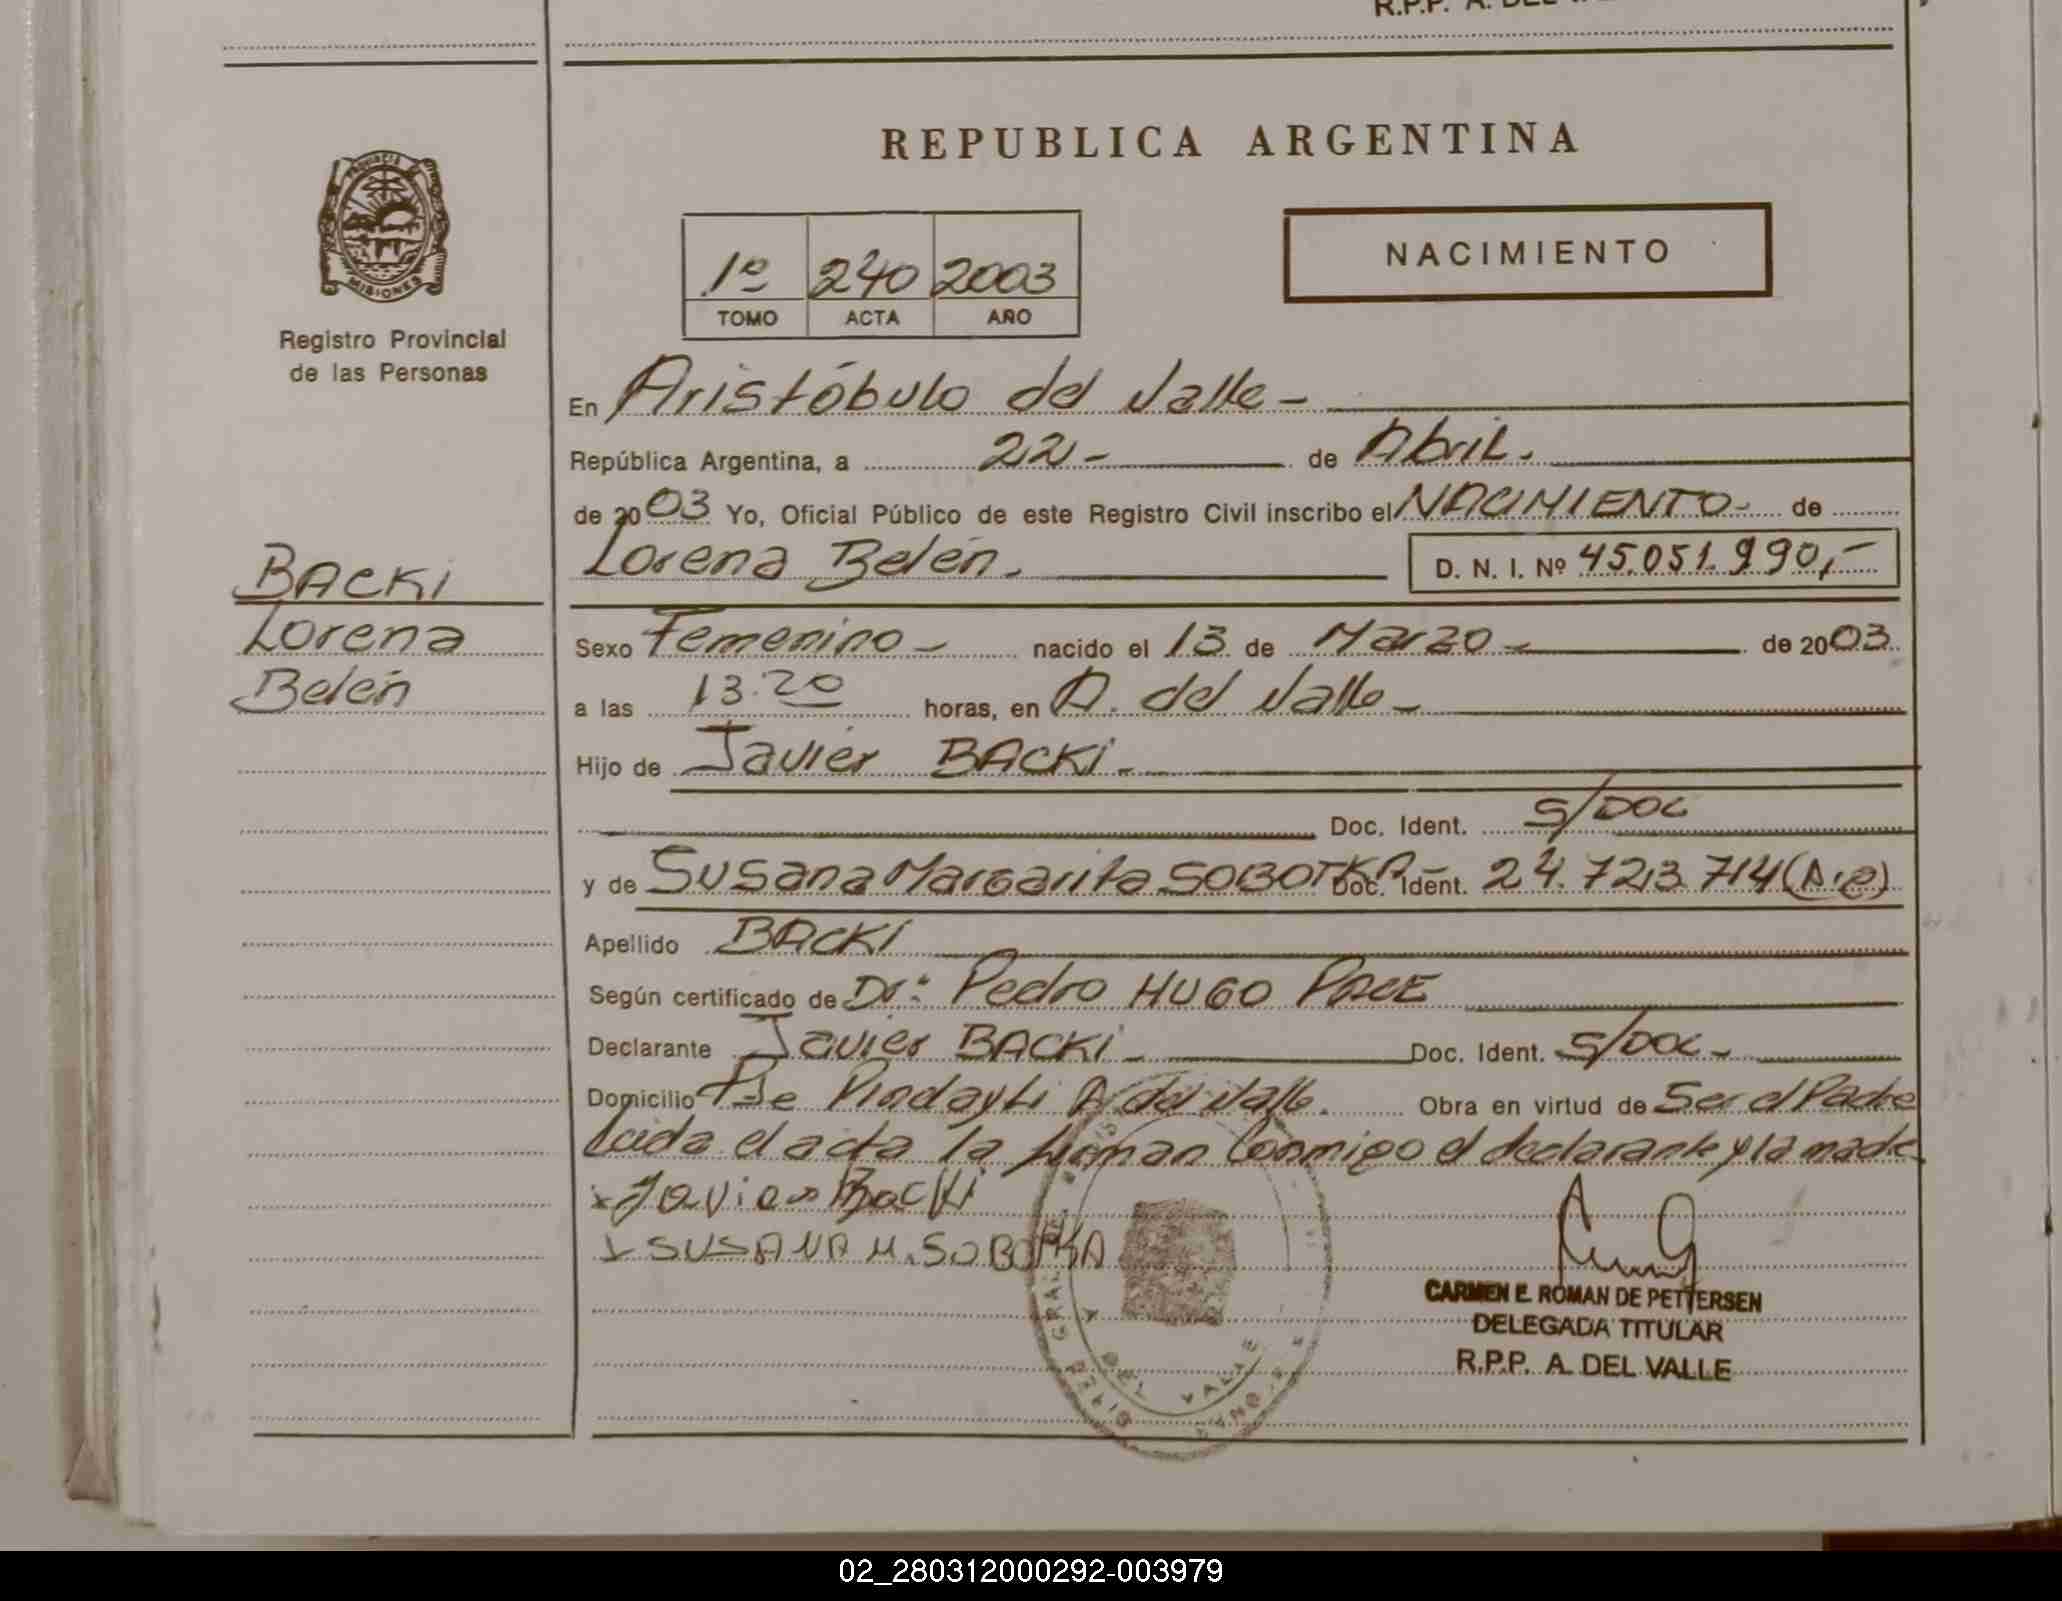 R.P.P. A. DEL
REPUBLICA ARGENTINA
PROVINCIA
MISIONES
Registro Provincial
de las Personas
1º 240 2003
TOMO ACTA AÑO
NACIMIENTO
En Aristóbulo del Valle -
República Argentina, a 22 - de Abril.
de 2003 Yo, Oficial Público de este Registro Civil inscribo el NACIMIENTO - de
Lorena Belén. D. N. I. Nº 45.051.990,-
BACKI
Lorena
Belén
Sexo Femenino - nacido el 13 de Marzo - de 2003
a las 13.20 horas, en A. del Valle -
Hijo de Javier BACKI -
Doc. Ident. S/DOC
y de Susana Margarita SOBOTKA - Doc. Ident. 24.723.714
Apellido BACKI
Según certificado de Dr: Pedro HUGO PACE
Declarante Javier BACKI - Doc. Ident. S/DOC -
Domicilio Pindayti A. del Valle. Obra en virtud de Ser el Padre
Leida el acta la firman Conmigo el declarante y la madre
x Javier Backi
x SUSANA M. SOBOTKA
DEL VALLE
CARMEN E. ROMAN DE PETTERSEN
DELEGADA TITULAR
R.P.P. A. DEL VALLE
02_280312000292-003979